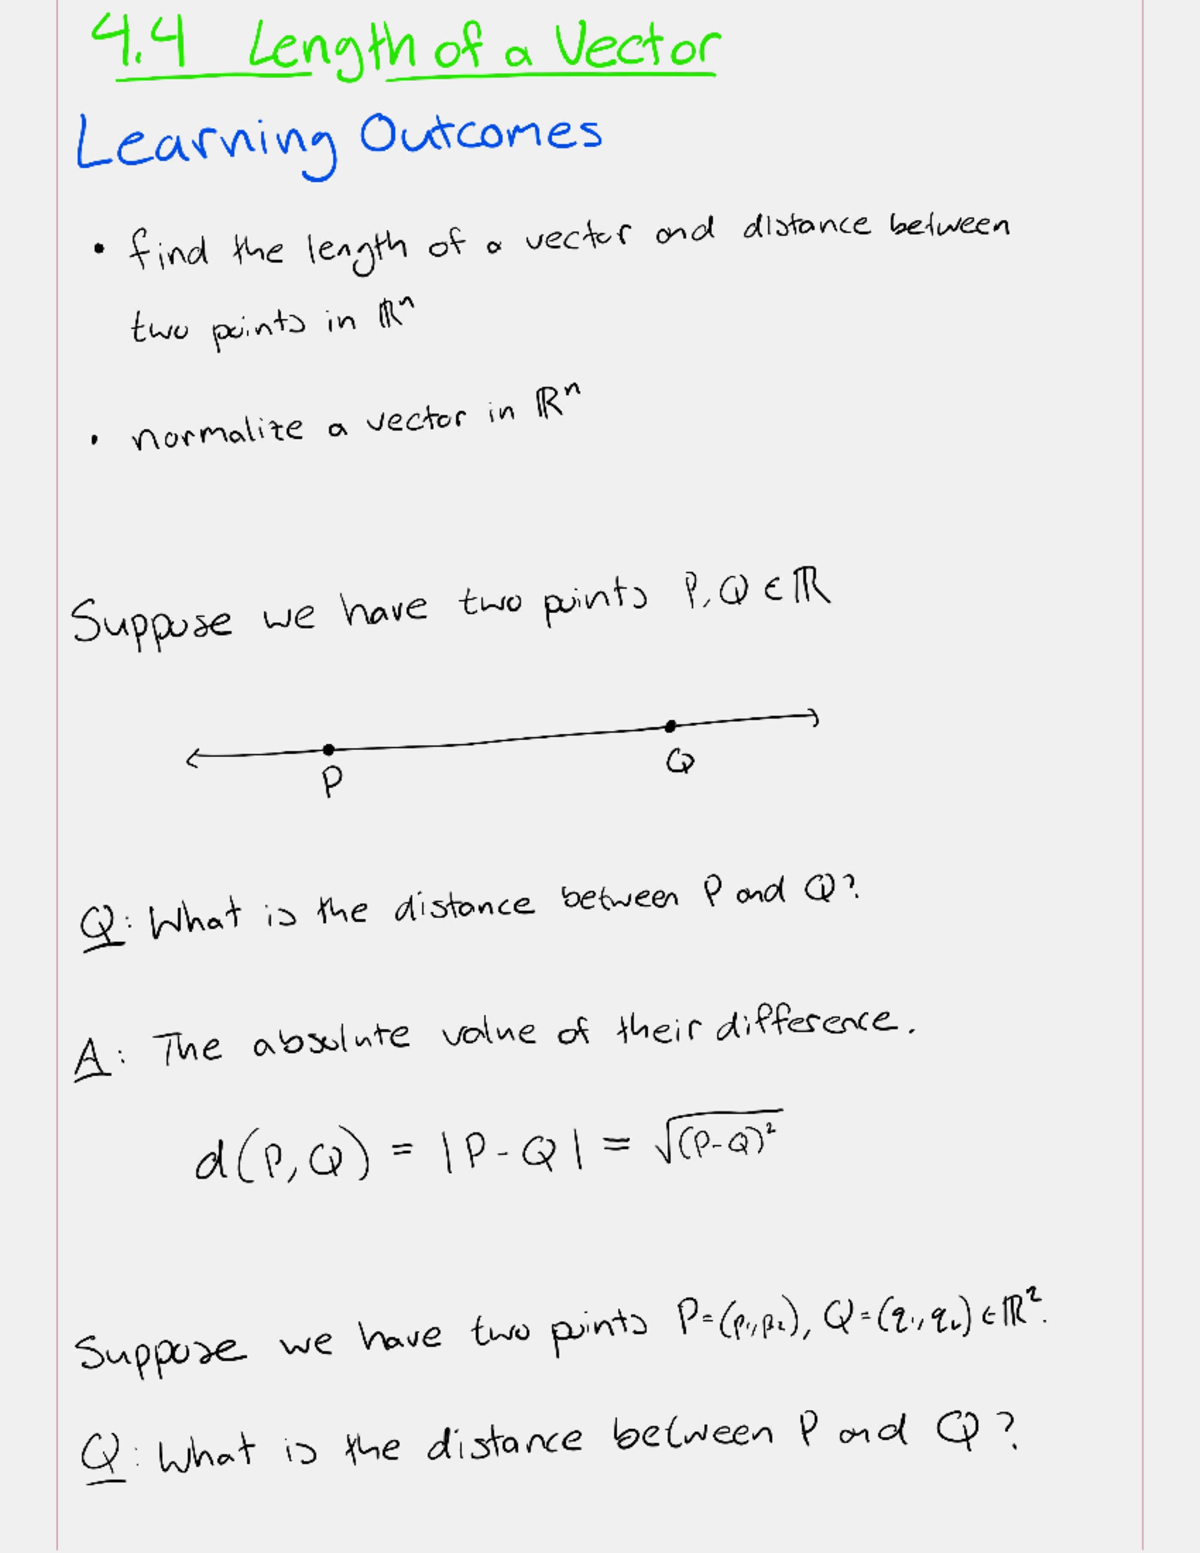 4.4 Length of a Vector
Learning Outcomes
• find the length of a vector and distance between
two points in ℝⁿ
• normalize a vector in ℝⁿ
Suppose we have two points P, Q ∈ ℝ
P Q
Q: What is the distance between P and Q?
A: The absolute value of their difference.
d(P, Q) = |P - Q| = √(P-Q)²
Suppose we have two points P=(p₁,p₂), Q=(q₁,q₂) ∈ ℝ².
Q: What is the distance between P and Q?